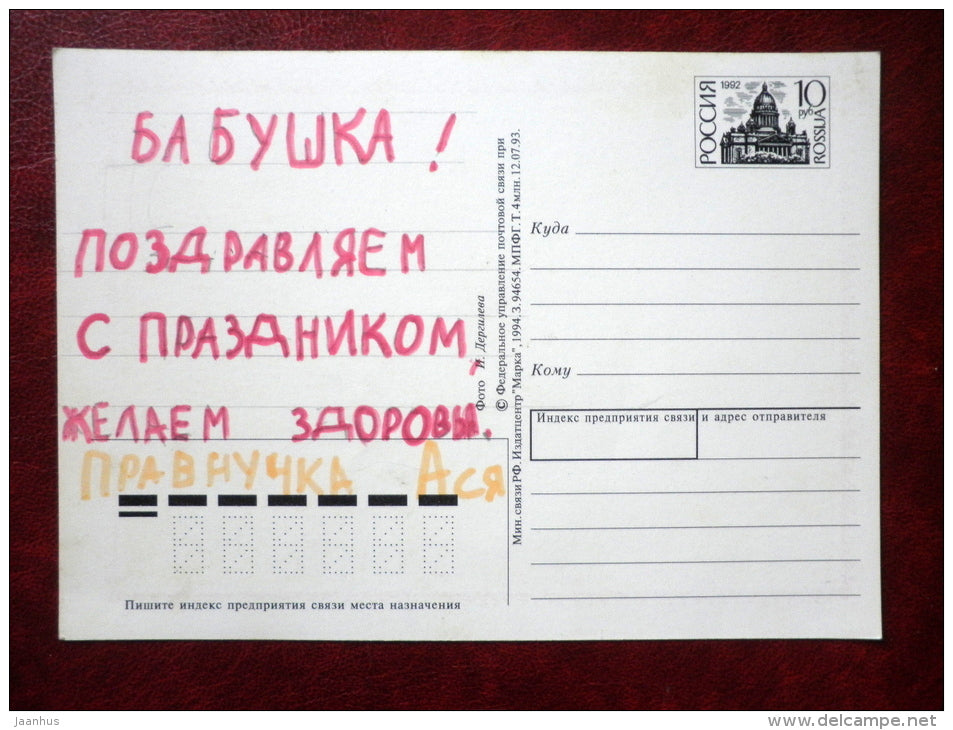 БАБУШКА!
ПОЗДРАВЛЯЕМ
С ПРАЗДНИКОМ,
ЖЕЛАЕМ ЗДОРОВЫ.
ПРАВНУЧКА АСЯ
Пишите индекс предприятия связи места назначения
Фото И. Дергилева
© Федеральное управление почтовой связи при
Мин. связи РФ. Издатцентр "Марка", 1994. З. 94654. МПФГ. Т. 4 млн. 12.07.93.
РОССИЯ
1992
10
руб
ROSSIJA
Куда
Кому
Индекс предприятия связи и адрес отправителя
Jaanhus
www.delcampe.net